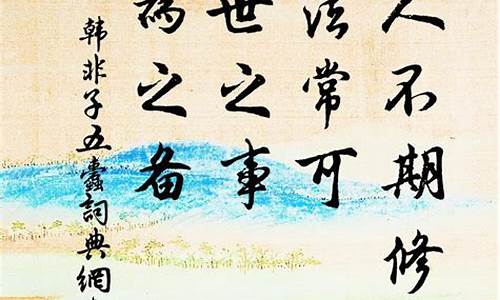 人不期修
法常可
世之事
為之备
韩非子五蠹詞典網